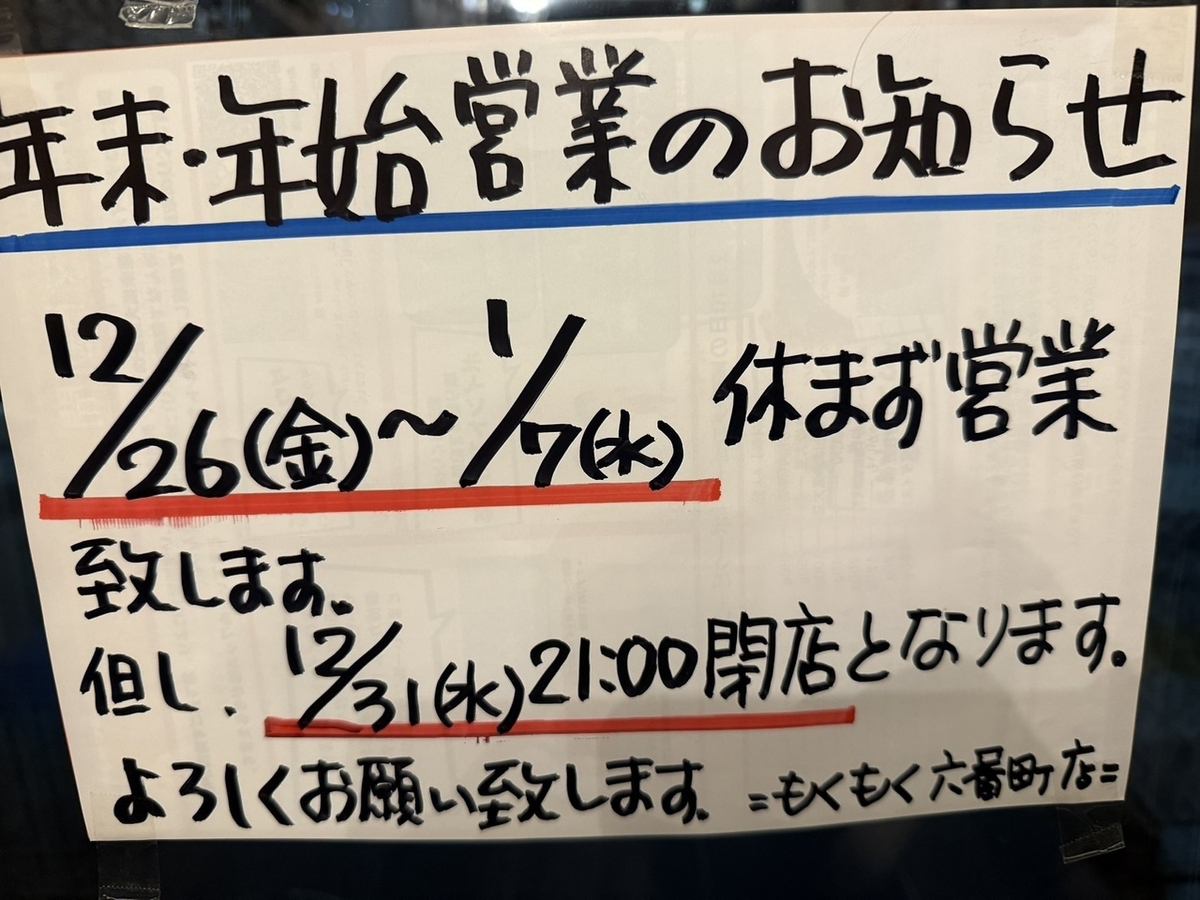 年末・年始営業のお知らせ
12/26(金)〜1/7(水) 休まず営業
致します。
但し、12/31(水)21:00閉店となります。
よろしくお願い致します。=もくもく六番町店=